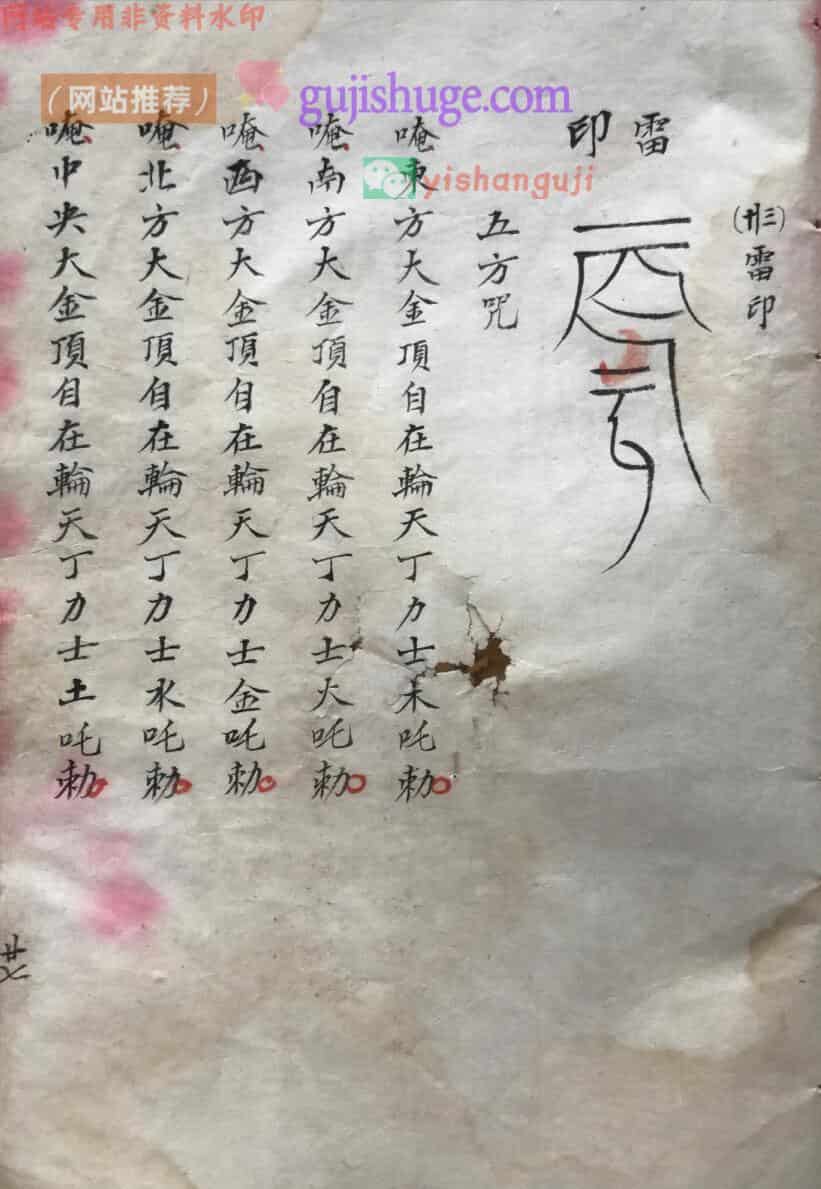 网站专用非资料水印
(网站推荐)
gujishuge.com
yishanguji
(卅三)雷印
雷印
五方咒
唵東方大金頂自在輪天丁力士木吒勅
唵南方大金頂自在輪天丁力士火吒勅
唵西方大金頂自在輪天丁力士金吒勅
唵北方大金頂自在輪天丁力士水吒勅
唵中央大金頂自在輪天丁力士土吒勅